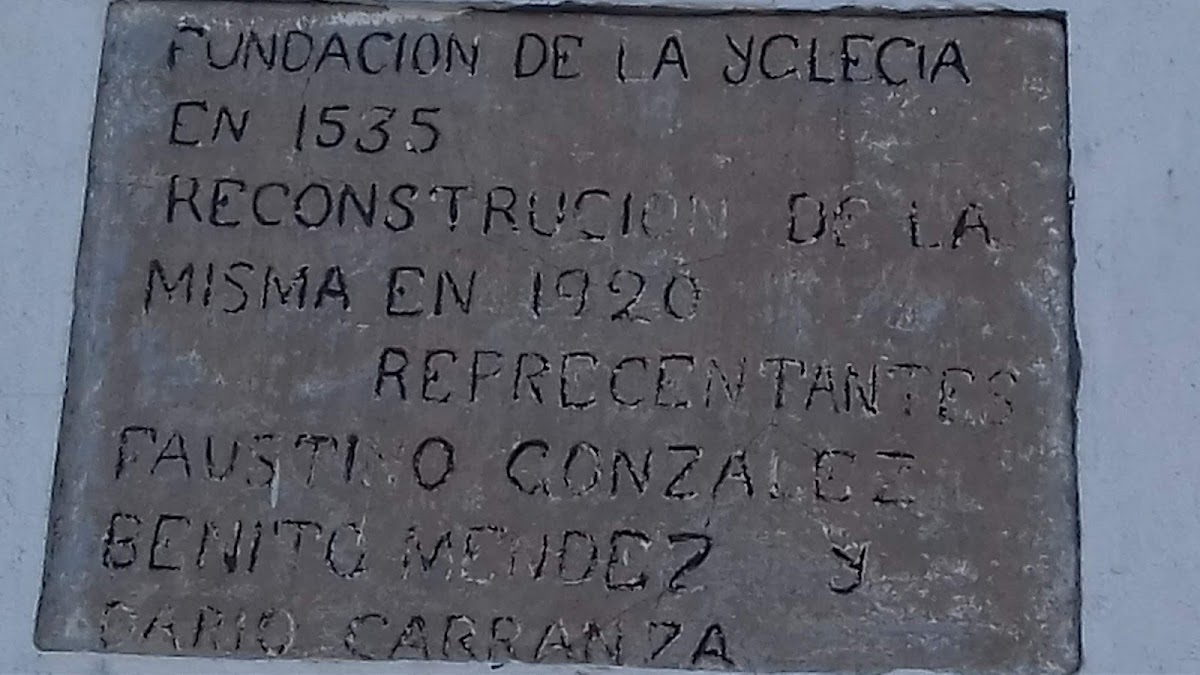 FUNDACION DE LA YGLECIA
EN 1535
RECONSTRUCION DE LA
MISMA EN 1920
REPRECENTANTES
FAUSTINO GONZALEZ
BENITO MENDEZ Y
DARIO CARRANZA